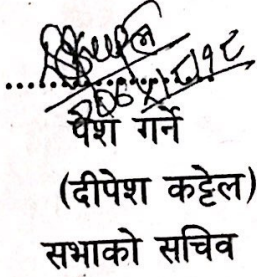 पेश गर्ने
(दीपेश कट्टेल)
सभाको सचिव